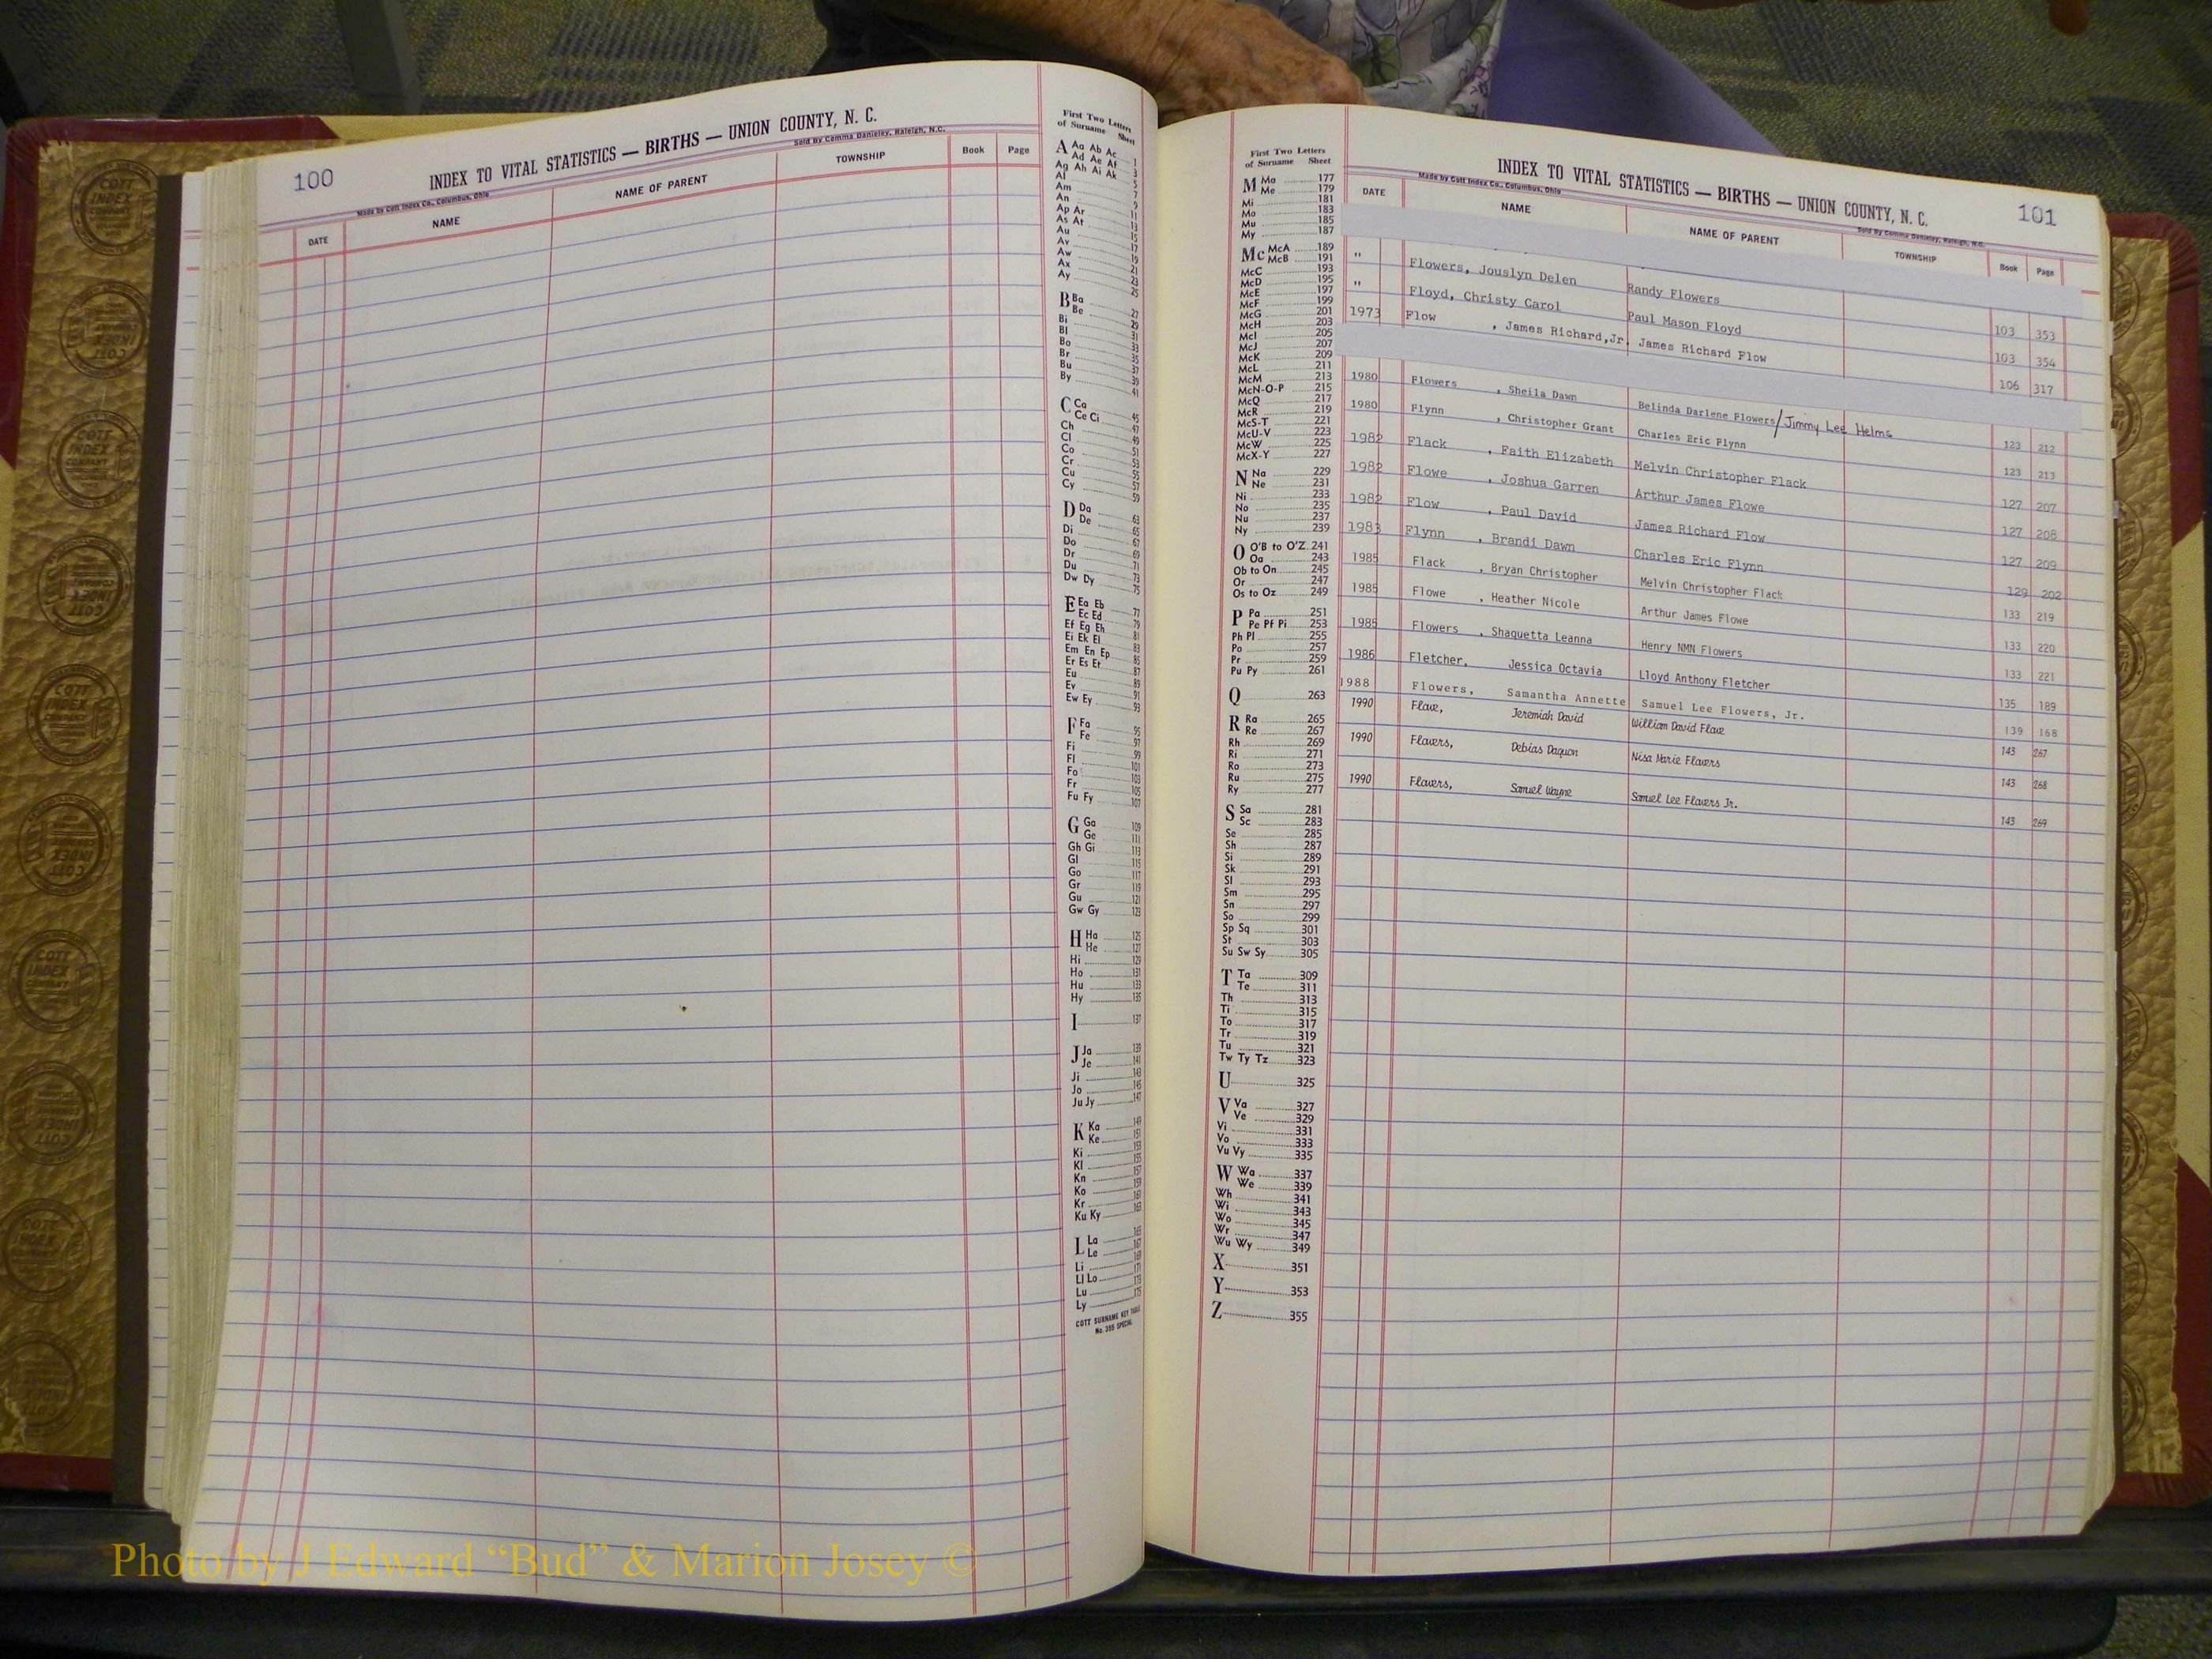 100
INDEX TO VITAL STATISTICS — BIRTHS — UNION COUNTY, N. C.
Made by Cott Index Co., Columbus, Ohio
Sold By Comma Danieley, Raleigh, N.C.
DATE NAME NAME OF PARENT TOWNSHIP Book Page
First Two Letters
of Surname Sheet
A Aa Ab Ac 1
Ad Ae Af 3
Ag Ah Ai Ak 5
Al 7
Am 9
An 11
Ap Ar 13
As At 15
Au 17
Av 19
Aw 21
Ax 23
Ay 25
B Ba 27
Be 29
Bi 31
Bl 33
Bo 35
Br 37
Bu 39
By 41
C Ca 45
Ce Ci 47
Ch 49
Cl 51
Co 53
Cr 55
Cu 57
Cy 59
D Da 63
De 65
Di 67
Do 69
Dr 71
Du 73
Dw Dy 75
E Ea Eb 77
Ec Ed 79
Ef Eg Eh 81
Ei Ek El 83
Em En Ep 85
Er Es Et 87
Eu 89
Ev 91
Ew Ey 93
F Fa 95
Fe 97
Fi 99
Fl 101
Fo 103
Fr 105
Fu Fy 107
G Ga 109
Ge 111
Gh Gi 113
Gl 115
Go 117
Gr 119
Gu 121
Gw Gy 123
H Ha 125
He 127
Hi 129
Ho 131
Hu 133
Hy 135
I 137
J Ja 139
Je 141
Ji 143
Jo 145
Ju Jy 147
K Ka 149
Ke 151
Ki 153
Kl 155
Kn 157
Ko 159
Kr 161
Ku Ky 163
L La 165
Le 167
Li 169
Ll Lo 171
Lu 173
Ly 175
COTT SURNAME KEY TABLE
No. 355 SPECIAL
First Two Letters
of Surname Sheet
M Ma 177
Me 179
Mi 181
Mo 183
Mu 185
My 187
Mc McA 189
McB 191
McC 193
McD 195
McE 197
McF 199
McG 201
McH 203
McI 205
McJ 207
McK 209
McL 211
McM 213
McN-O-P 215
McQ 217
McR 219
McS-T 221
McU-V 223
McW 225
McX-Y 227
N Na 229
Ne 231
Ni 233
No 235
Nu 237
Ny 239
O O'B to O'Z 241
Oa 243
Ob to On 245
Or 247
Os to Oz 249
P Pa 251
Pe Pf Pi 253
Ph Pl 255
Po 257
Pr 259
Pu Py 261
Q 263
R Ra 265
Re 267
Rh 269
Ri 271
Ro 273
Ru 275
Ry 277
S Sa 281
Sc 283
Se 285
Sh 287
Si 289
Sk 291
Sl 293
Sm 295
Sn 297
So 299
Sp Sq 301
St 303
Su Sw Sy 305
T Ta 309
Te 311
Th 313
Ti 315
To 317
Tr 319
Tu 321
Tw Ty Tz 323
U 325
V Va 327
Ve 329
Vi 331
Vo 333
Vu Vy 335
W Wa 337
We 339
Wh 341
Wi 343
Wo 345
Wr 347
Wu Wy 349
X 351
Y 353
Z 355
INDEX TO VITAL STATISTICS — BIRTHS — UNION COUNTY, N. C. 101
Made by Cott Index Co., Columbus, Ohio
Sold By Comma Danieley, Raleigh, N.C.
DATE NAME NAME OF PARENT TOWNSHIP Book Page
" Flowers, Jouslyn Delen Randy Flowers 103 353
" Floyd, Christy Carol Paul Mason Floyd 103 354
1973 Flow , James Richard,Jr. James Richard Flow 106 317
1980 Flowers , Sheila Dawn Belinda Darlene Flowers/Jimmy Lee Helms 123 212
1980 Flynn , Christopher Grant Charles Eric Flynn 123 213
1982 Flack , Faith Elizabeth Melvin Christopher Flack 127 207
1982 Flowe , Joshua Garren Arthur James Flowe 127 208
1982 Flow , Paul David James Richard Flow 127 209
1983 Flynn , Brandi Dawn Charles Eric Flynn 129 202
1985 Flack , Bryan Christopher Melvin Christopher Flack 133 219
1985 Flowe , Heather Nicole Arthur James Flowe 133 220
1985 Flowers , Shaquetta Leanna Henry NMN Flowers 133 221
1986 Fletcher, Jessica Octavia Lloyd Anthony Fletcher 135 189
1988 Flowers, Samantha Annette Samuel Lee Flowers, Jr. 139 168
1990 Flowe, Jeremiah David William David Flowe 143 267
1990 Flowers, Debias Daquon Nisa Marie Flowers 143 268
1990 Flowers, Samuel Wayne Samuel Lee Flowers Jr. 143 269
Photo by J Edward “Bud” & Marion Josey ©